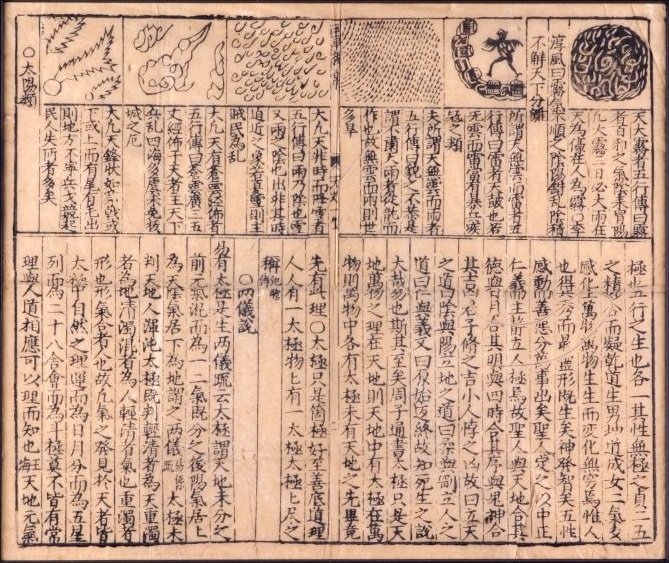 天大霧者五行傳曰霧
者百和之氣陰來冒陽
凡大霧三日必大雨在
天為濛在人為霧○李
淳風曰霧氣不順之陰陽錯亂陰積
不解天下分離
所謂天無雲而雷者五
行傳曰雷者天鼓也若
無雲而雷當有暴兵疾
寇之類
夫所謂天無雲而雨者
五行傳曰貌之不恭是
謂不肅天雨者從而
作也故無雲而雨則世
多旱
大凡天非時而降雪者
五行傳曰雨乃陰也雪
又雨之陰也出非其時
迫近之象若夏雪則主
賊民為亂
大凡天有蒼雲經佈者
五行傳曰蒼雲廣三五
丈經佈于天者王天下
兵亂四海多憂未免拔
城之厄
大凡天鋒狀如劍戟或
下或上而有尾有毛出
則地方不寧兵戈發起
民人失所者多矣
○太陽類
極也五行之生也各一其性無極之真二五
之精妙合而凝乾道生男坤道成女二氣交
感化生萬物萬物生生而變化無窮焉惟人
也得其秀而最靈形既生矣神發知矣五性
感動而善惡分萬事出矣聖人定之以中正
仁義而主靜立人極焉故聖人與天地合其
德與日月合其明與四時合其序與鬼神合
其吉凶君子修之吉小人悖之凶故曰立天
之道曰陰與陽立地之道曰柔與剛立人之
道曰仁與義又曰原始反終故知死生之說
大哉易也斯其至矣周子通書太極只是天
地萬物之理在天地則天地中有太極在萬
物則萬物中各有太極未有天地之先畢竟
先有此理○太極只是箇極好至善底道理
人人有一太極物上有一太極太極上
稱
○兩儀說
易有太極是生兩儀疏云太極謂天地未分之
前元氣混而為一二氣既分之後陽氣居上
為天陰氣居下為地謂之兩儀易繫疏太極未
判天地人渾沌太極既判輕清者為天重濁
者為地清濁混者為人輕清者氣也重濁者
形也形氣合者人也故凡氣之發見於天者皆
太極中自然之理運而為日月分而為五星
列而為二十八舍會而為斗極莫不皆有常
理與人道相應可以理而知也王海天地元氣